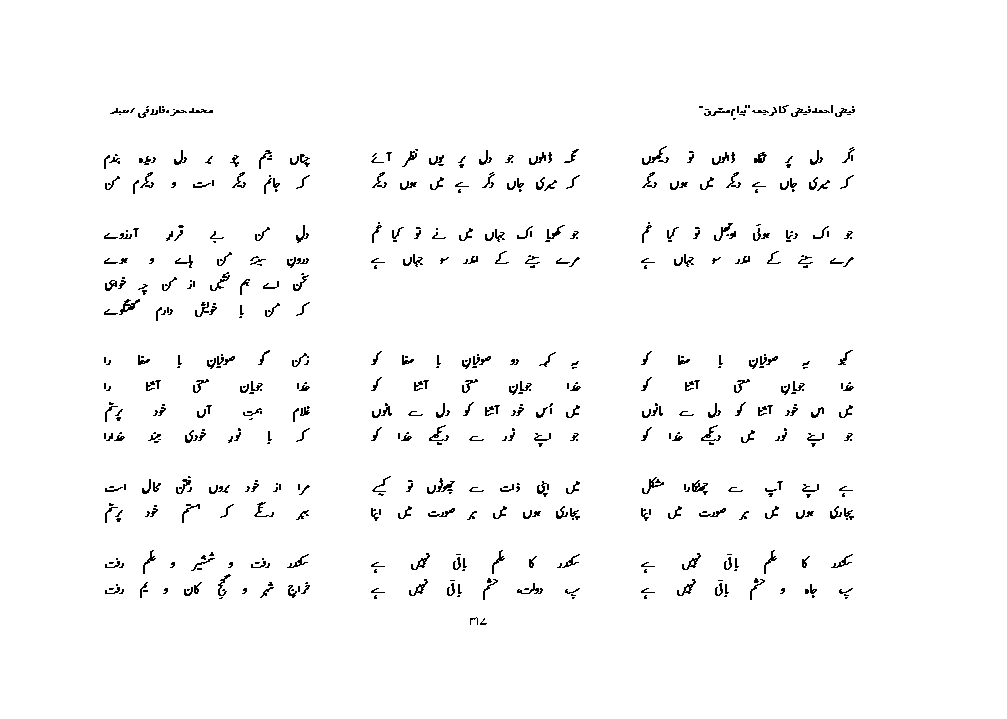 فیض احمد فیض کا ترجمہ "پیامِ مشرق"
محمد حمزہ فاروقی / سید
اگر دل پر نگاہ ڈالوں تو دیکھوں
نگہ ڈالوں جو دل پر یوں نظر آئے
چناں بینم چو بر دل دیدہ بندم
کہ میری جاں ہے دیگر میں ہوں دیگر
کہ میری جاں دگر ہے میں ہوں دیگر
کہ جانم دیگر است و دیگرم من
جو اک دنیا ہوئی اوجھل تو کیا غم
جو کھویا اک جہاں میں نے تو کیا غم
دلِ من بے قرارِ آرزوے
مرے سینے کے اندر سو جہاں ہے
مرے سینے کے اندر سو جہاں ہے
درونِ سینۂ من ہاے و ہوے
سخن اے ہم نشیں از من چہ خواہی
کہ من با خویش دارم گفتگوے
کہو یہ صوفیانِ با صفا کو
یہ کہہ دو صوفیانِ با صفا کو
ز من گو صوفیانِ با صفا را
خدا جویانِ معنی آشنا کو
خدا جویانِ معنی آشنا کو
خدا جویانِ معنی آشنا را
میں اس خود آشنا کو دل سے مانوں
میں اُس خود آشنا کو دل سے مانوں
غلامِ ہمتِ آں خود پرستم
جو اپنے نور میں دیکھے خدا کو
جو اپنے نور سے دیکھے خدا کو
کہ با نورِ خودی بیند خدا را
ہے اپنے آپ سے چھٹکارا مشکل
میں اپنی ذات سے چھوٹوں تو کیسے
مرا از خود بروں رفتن محال است
پجاری ہوں میں ہر صورت میں اپنا
پجاری ہوں میں ہر صورت میں اپنا
بہر رنگے کہ ہستم خود پرستم
سکندر کا علم باقی نہیں ہے
سکندر کا علم باقی نہیں ہے
سکندر رفت و شمشیر و علم رفت
سپہ جاہ و حشم باقی نہیں ہے
سپہ، دولت، حشم باقی نہیں ہے
خراجِ شہر و گنجِ کان و یم رفت
۳۱۷